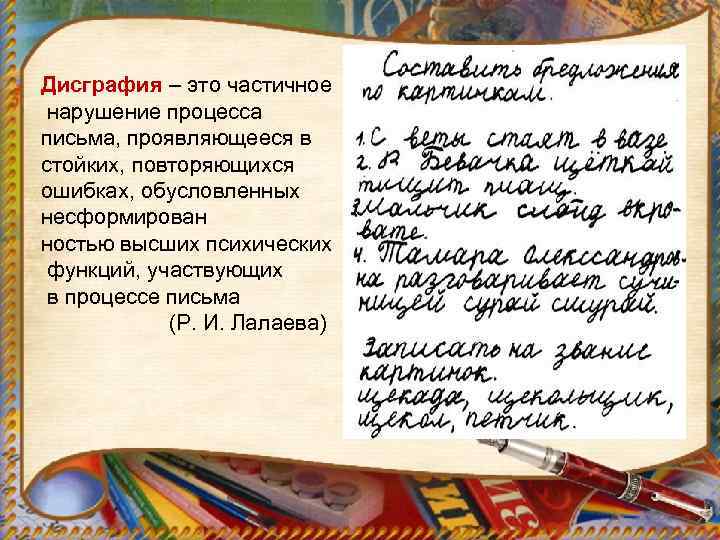 Дисграфия – это частичное
нарушение процесса
письма, проявляющееся в
стойких, повторяющихся
ошибках, обусловленных
несформирован
ностью высших психических
функций, участвующих
в процессе письма
(Р. И. Лалаева)
Составить бредложения
по картинкам.
1. С веты стаят в вазе
2. В Бевачка щёткай
тищит плащ.
3. Мальчик слойд вкро-
вате.
4. Тамара Олекссандров-
на разговаривает сучи-
ницей сурай сшурай.
Записать на звание
картинок.
щекада, щекольщик,
щекол, петчик.